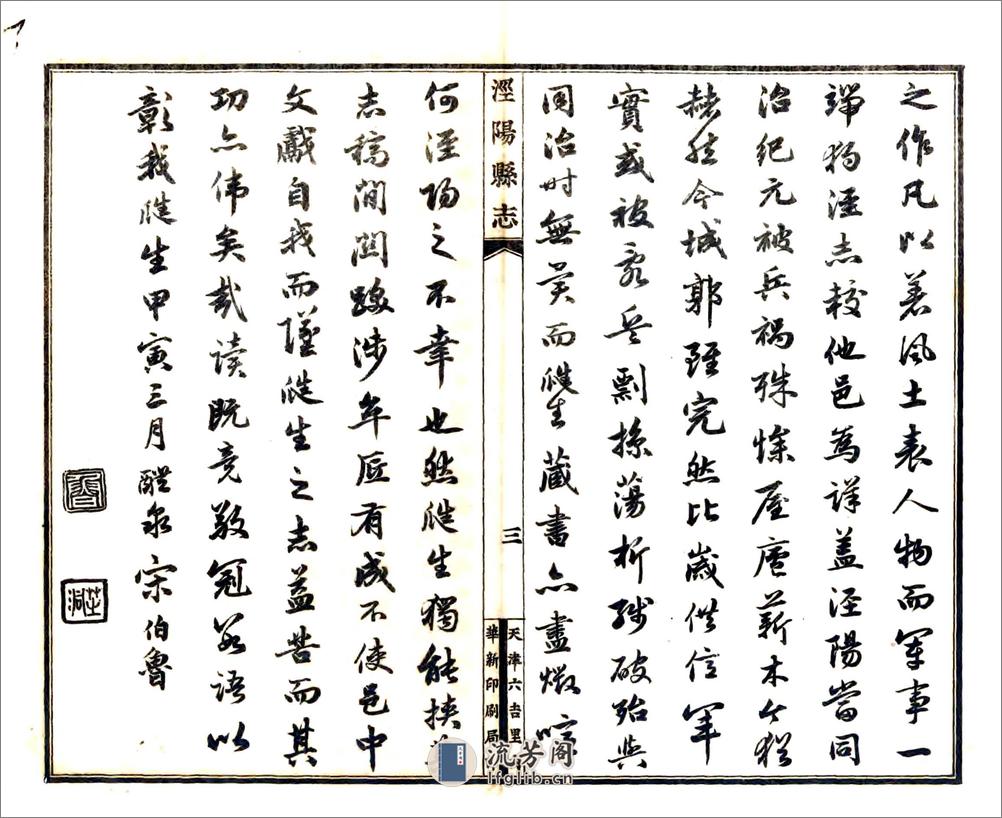 之作凡以著風土表人物而軍事一
端獨涇志較他邑為詳蓋涇陽當同
治紀元被兵禍殊慘屋廬薪木今猶
赫然今城郭雖完然比歲供信軍
實或被亂兵剽掠蕩析殘破殆與
同治時無異而僊生藏書亦盡燬
涇陽縣志
三
天津六吉里
華新印刷局
何涇陽之不幸也然僊生獨能挾
志稿間關跋涉年歷有成不使邑中
文獻自我而墜僊生之志益苦而其
功亦偉矣哉讀既竟敬冠數語以
彰我僊生甲寅三月醴泉宋伯魯
流芳阁
lfglib.cn